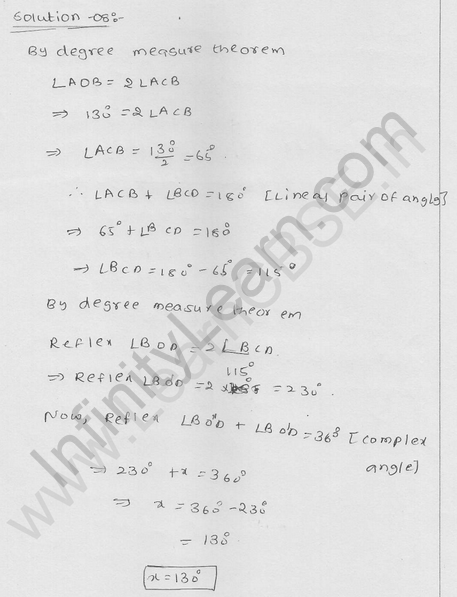 Solution -08:-
By degree measure theorem
∠AOB = 2∠ACB
⇒ 130° = 2∠ACB
⇒ ∠ACB = 130°/2 = 65°.
∴ ∠ACB + ∠BCD = 180° [Linear pair of angle]
⇒ 65° + ∠BCD = 180°
→ ∠BCD = 180° - 65° = 115°
By degree measure theorem
Reflex ∠BOD = 2∠BCD
115°
⇒ Reflex ∠BO'D = 2 × = 230°.
Now, Reflex ∠BO'D + ∠BO'D = 360° [complex
angle]
⇒ 230° + x = 360°
⇒ x = 360° - 230
= 130°
x = 130°
InfinityLearn.com